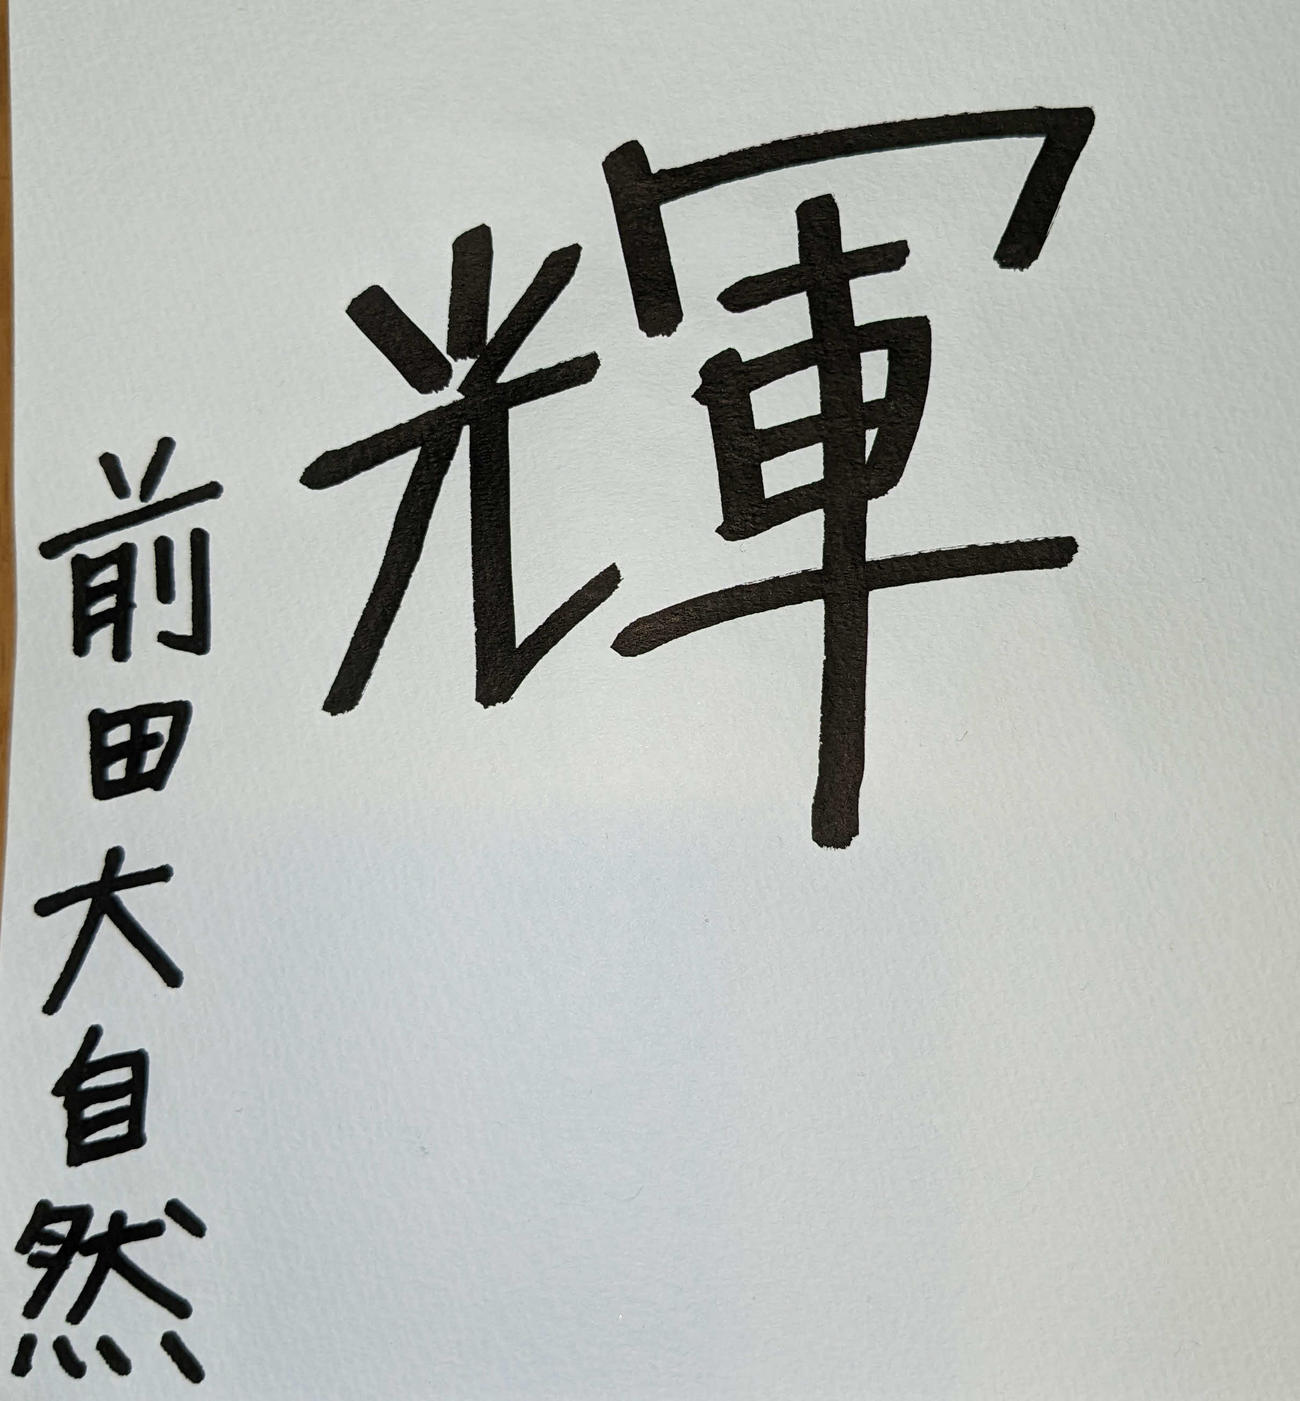 輝
前田大自然